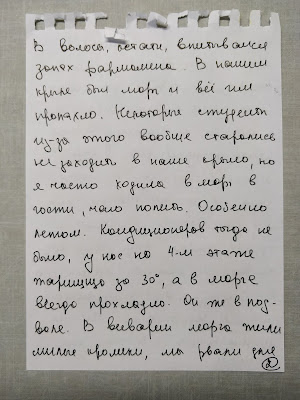 В волосы, кстати, впитывался
запах формалина. В нашем
крыле был морг и всё им
пропахло. Некоторые студенты
из-за этого вообще старались
не заходить в наше крыло, но
я часто ходила в морг в
гости, чаю попить. Особенно
летом. Кондиционеров тогда не
было, у нас на 4-м этаже
жарища за 30°, а в морге
всегда прохладно. Он же в под-
вале. В виварии морга жили
милые кролики, мы рвали для
2